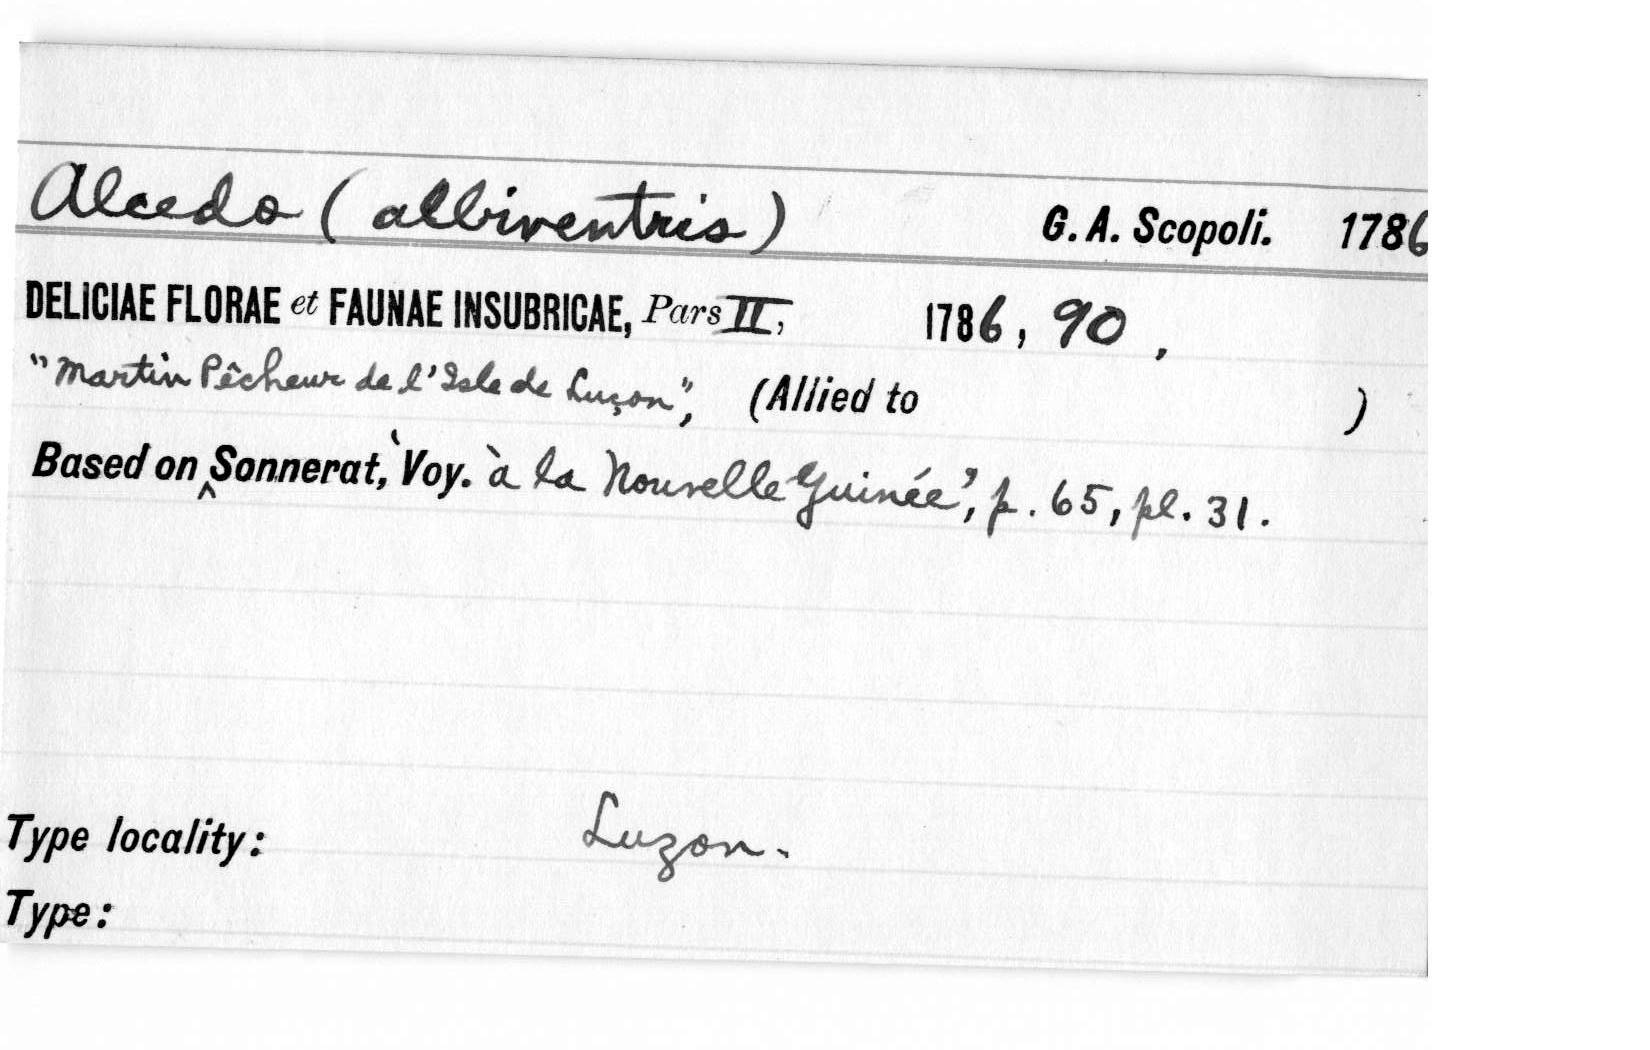 Alcedo (albiventris) G. A. Scopoli. 1786
DELICIAE FLORAE et FAUNAE INSUBRICAE, Pars II, 1786, 90,
"Martin Pêcheur de l'Isle de Luçon", (Allied to )
Based on ‸ Sonnerat, 'Voy. à la Nouvelle Guinée', p. 65, pl. 31.
Type locality: Luzon.
Type: